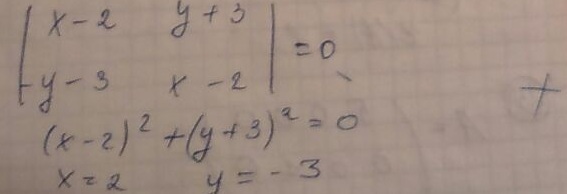 | x - 2   y + 3 |
| -y - 3   x - 2 | = 0
(x - 2)² + (y + 3)² = 0
x = 2   y = - 3
+